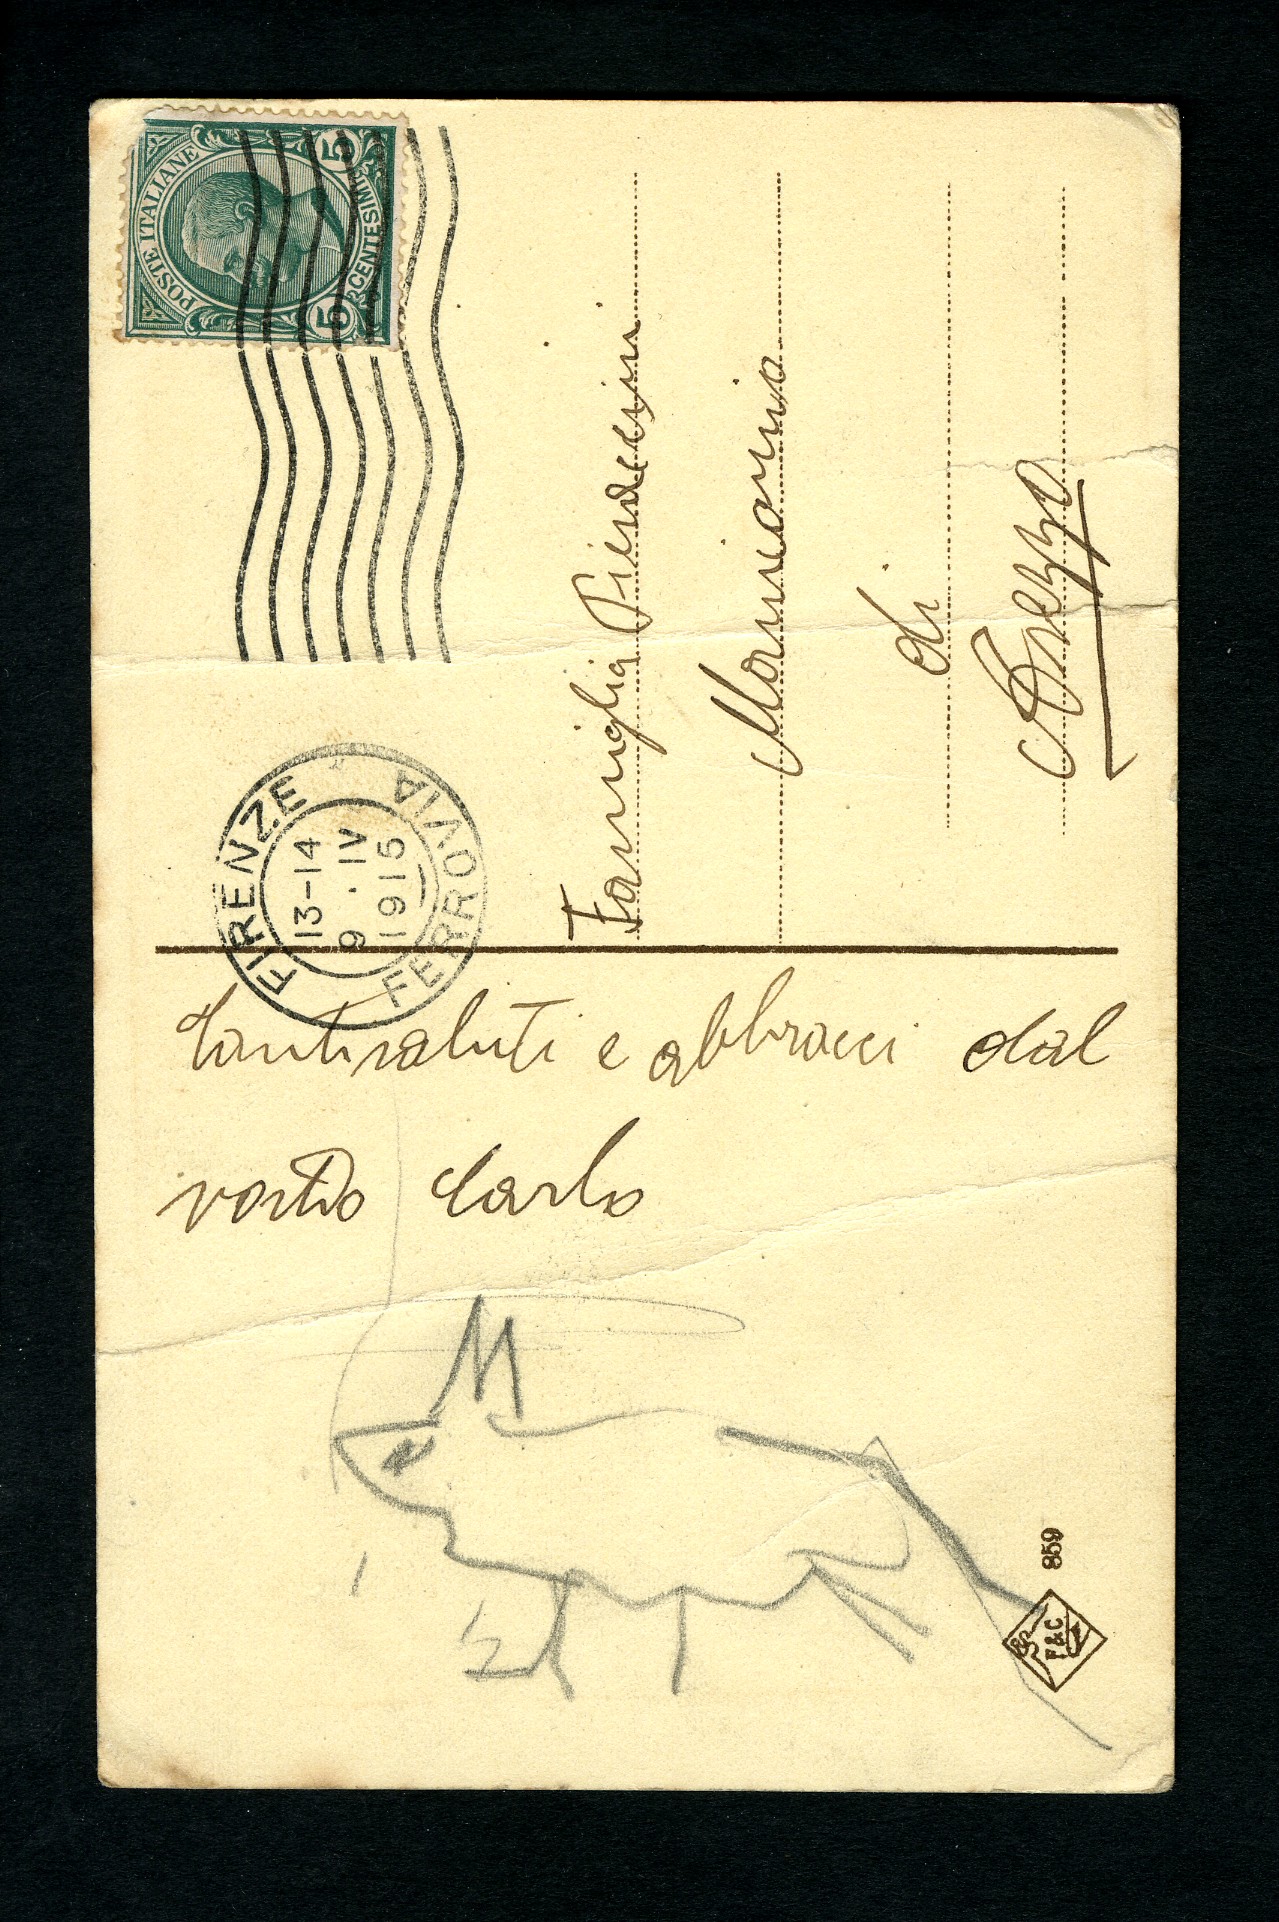 POSTE ITALIANE
5 CENTESIMI 5
FIRENZE
FERROVIA
13-14
9 . IV
1915
Famiglia
di
Arezzo
Tanti saluti e abbracci dal
vostro Carlo
859
F&C